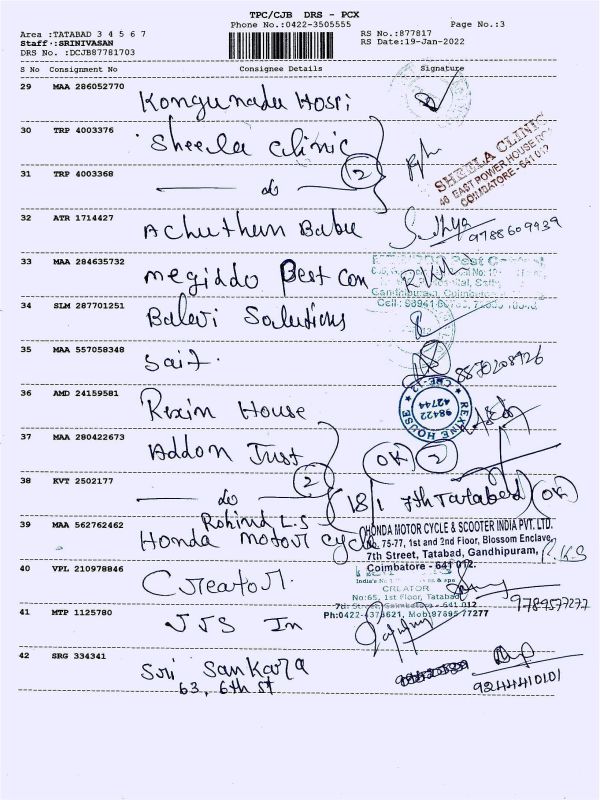 TPC/CJB DRS - PCX
Phone No.:0422-3505555 Page No.:3
Area :TATABAD 3 4 5 6 7 RS No.:877817
Staff:SRINIVASAN RS Date:19-Jan-2022
DRS No. :DCJB87781703
S No Consignment No Consignee Details Signature
29 MAA 286052770 Kongunadu Hospi
30 TRP 4003376 Sheela clinic
SHEELA CLINIC
46 EAST POWER HOUSE
COIMBATORE - 641 012
31 TRP 4003368 do 2
32 ATR 1714427 Achuthan Babu Sadhya
9788609939
33 MAA 284635732 megiddo Pest Con
Pest
Gandhipuram, Coimbatore
Cell :
34 SLM 287701251 Balavi Solutions
35 MAA 557058348 Sait.
8870208926
36 AMD 24159581 Rexin House
REXINE HOUSE CBE-12
98422
42744
37 MAA 280422673 Addon Trust OK 2
38 KVT 2502177 do 2 18/1 7th Tatabad OK
Rohind L.S
39 MAA 562762462 Honda motor cycle
HONDA MOTOR CYCLE & SCOOTER INDIA PVT. LTD.
75-77, 1st and 2nd Floor, Blossom Enclave,
7th Street, Tatabad, Gandhipuram,
Coimbatore - 641 012.
40 VPL 210978846 Creator.
India's No 1
CREATOR
No:65, 1st Floor, Tatabad
7th Street, Coimbatore - 641 012
Ph:0422-4376621, Mob:97695 77277
9789577277
41 MTP 1125780 JJS In
42 SRG 334341 Sri Sankara
63, 6th st
9244410101